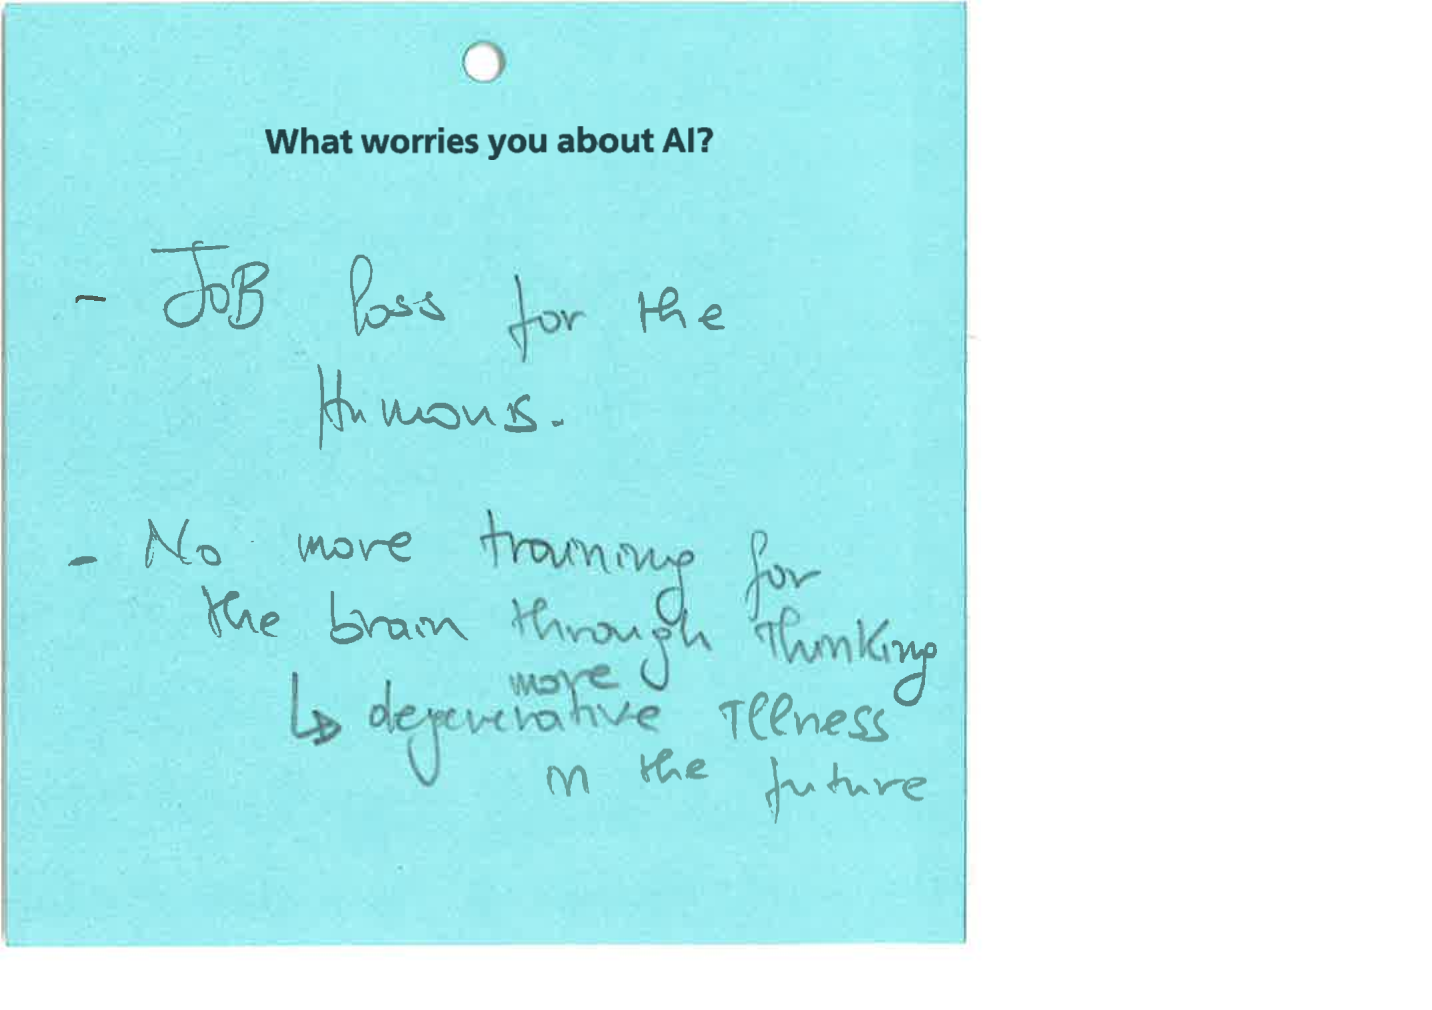 What worries you about AI?
- JOB loss for the
Humans.
- No more training for
the brain through thinking
more
↳ degenerative Illness
in the future